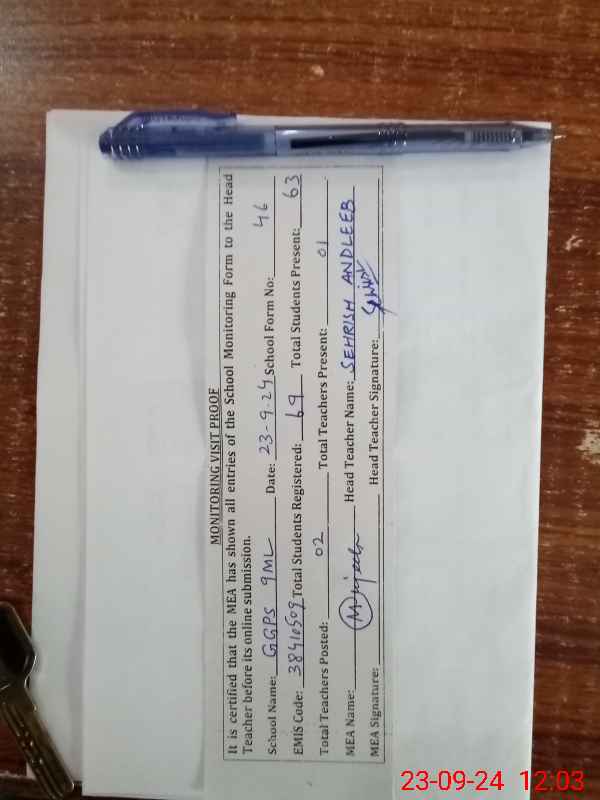 MONITORING VISIT PROOF
It is certified that the MEA has shown all entries of the School Monitoring Form to the Head
Teacher before its online submission.
School Name: GGPS 9ML Date: 23-9-24 School Form No: 46
EMIS Code: 38410509 Total Students Registered: 69 Total Students Present: 63
Total Teachers Posted: 02 Total Teachers Present: 01
MEA Name: Head Teacher Name: SEHRISH ANDLEEB
MEA Signature: Head Teacher Signature:
23-09-24 12:03